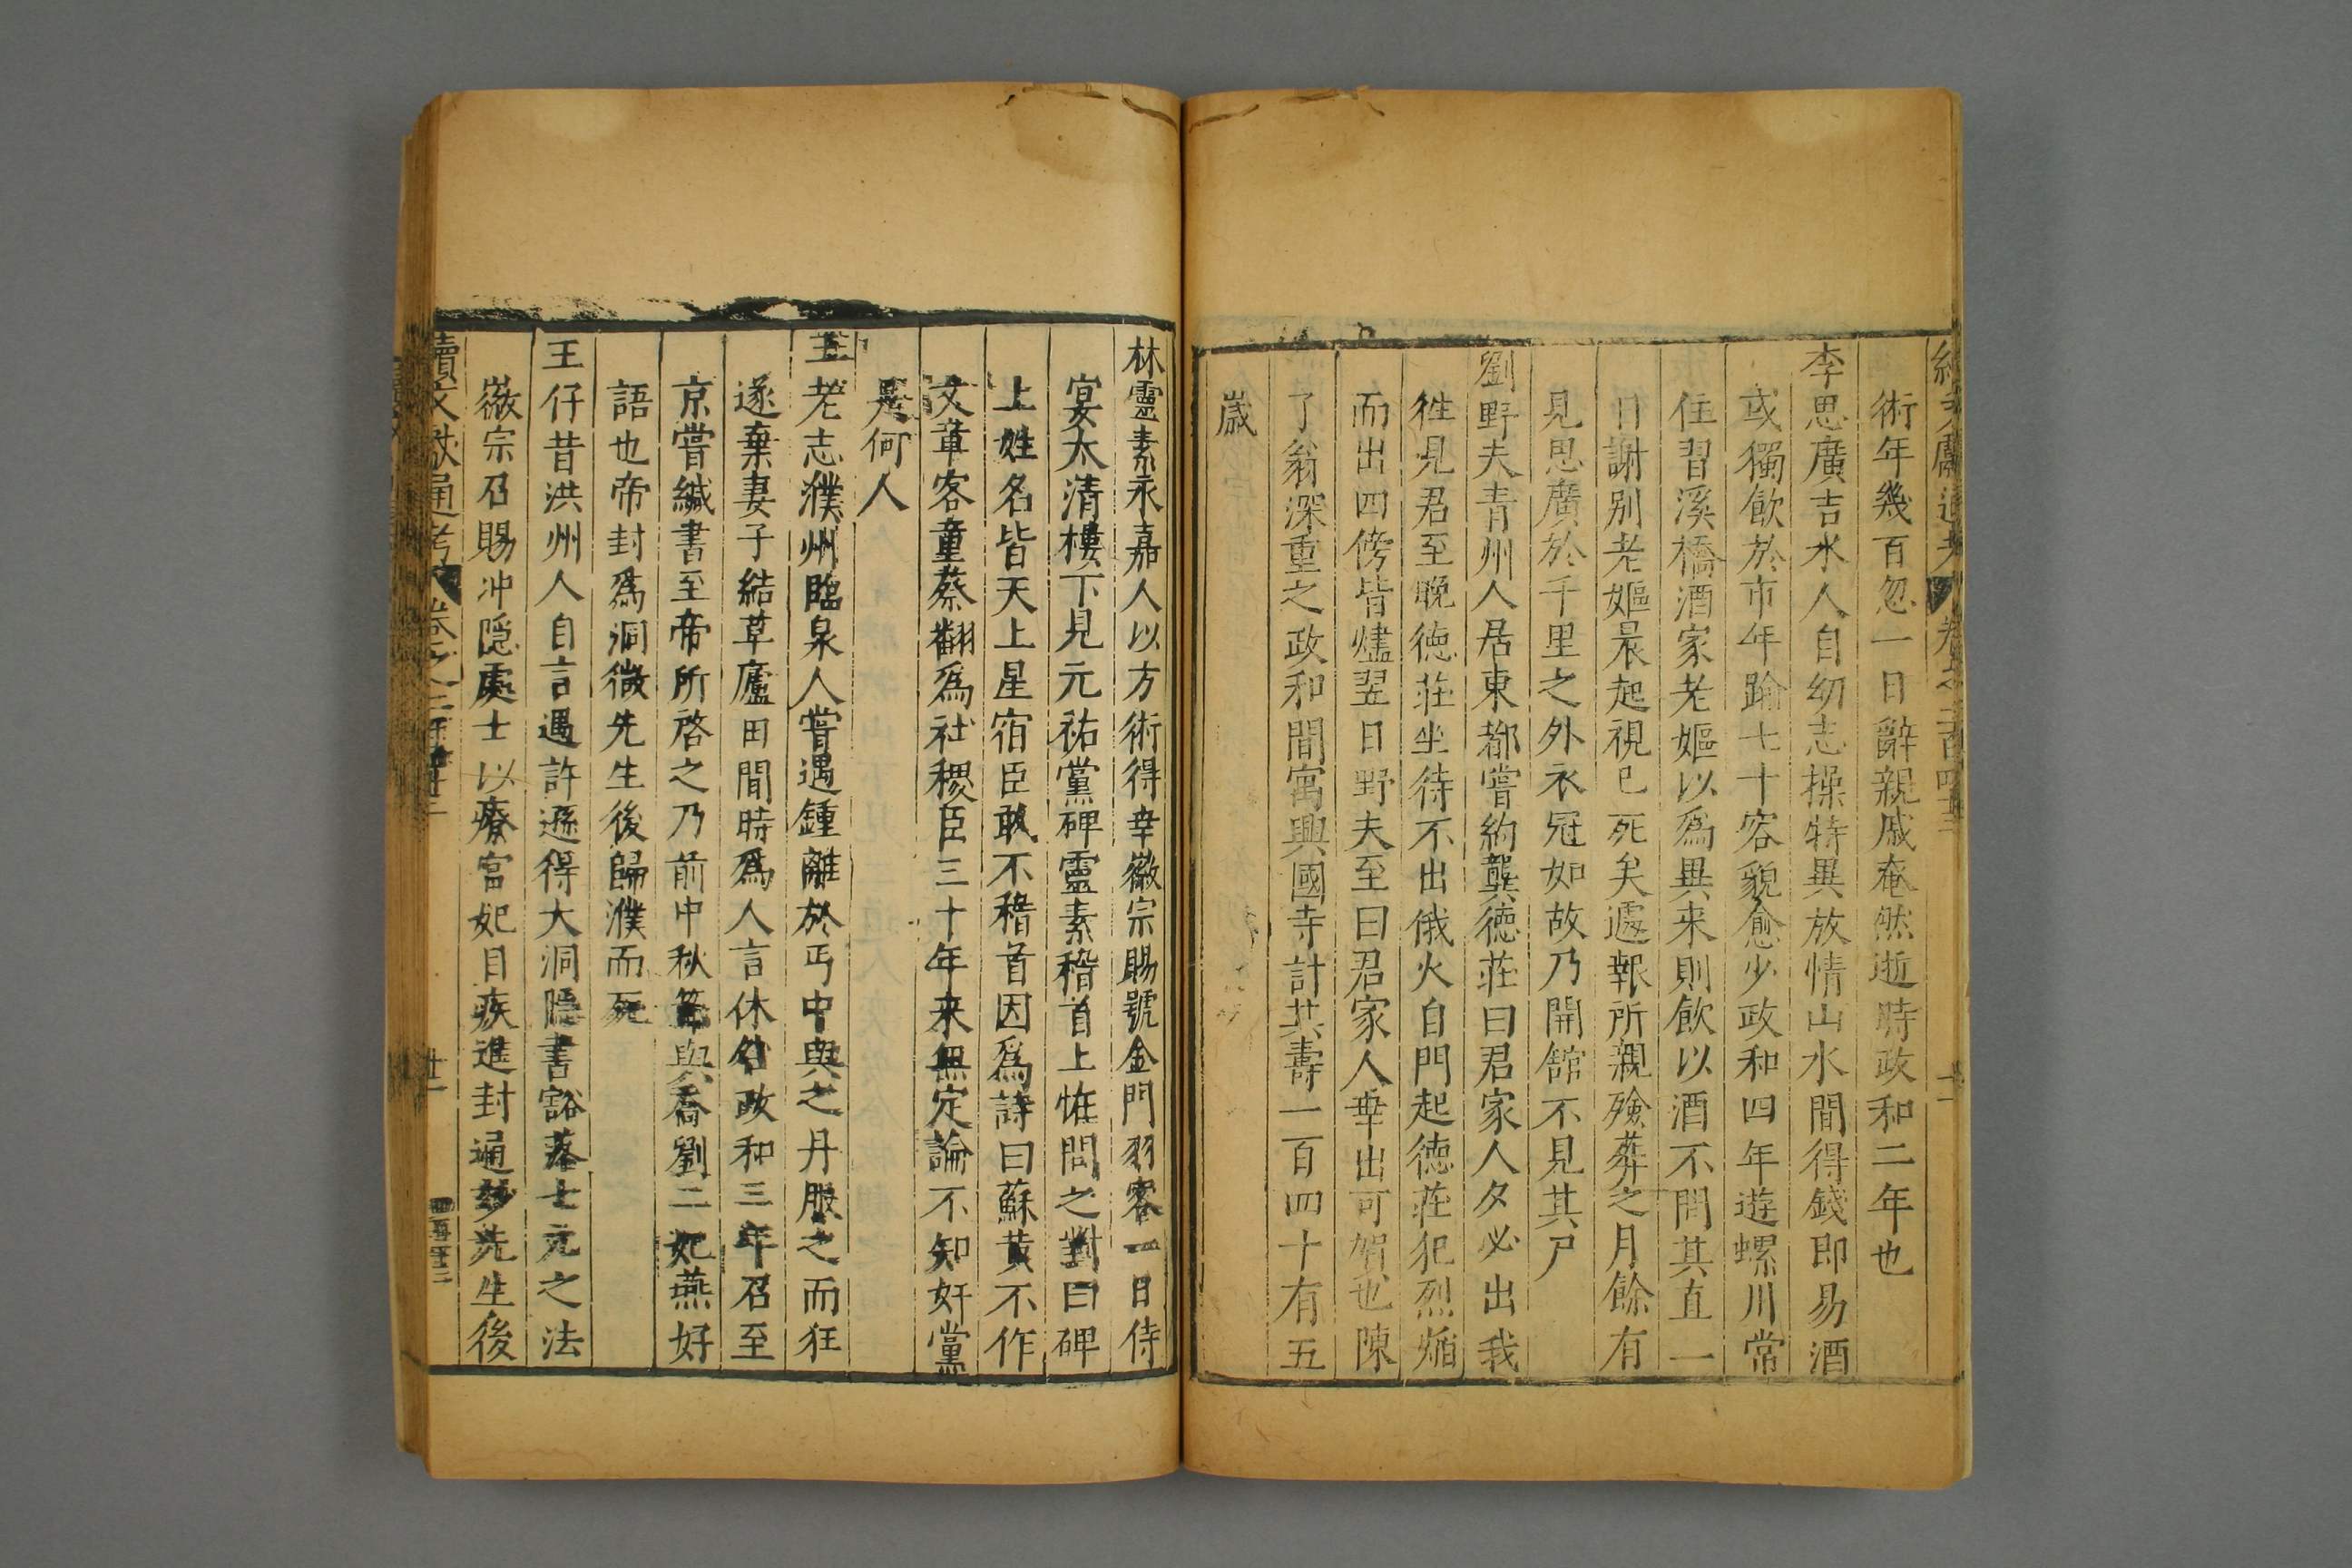 術年幾百忽一日辭親戚奄然逝時政和二年也
李思廣吉水人自幼志操特異放情山水間得錢即易酒
或獨飲於市年踰七十容貌愈少政和四年遊螺川常
住習溪橋酒家老嫗以爲異来則飲以酒不問其直一
日謝别老嫗晨起視已死矣遽報所親殮葬之月餘有
見思廣於千里之外衣冠如故乃開舘不見其尸
劉野夫青州人居東都嘗約龔徳莊曰君家人夕必出我
徃見君至晚徳莊坐待不出俄火自門起徳莊犯烈焔
而出四傍皆燼翌日野夫至曰君家人幸出可賀也陳
了翁深重之政和間寓興國寺計其壽一百四十有五
歲
林靈素永嘉人以方術得幸徽宗賜號金門羽客一日侍
宴太清樓下見元祐黨碑靈素稽首上恠問之對曰碑
上姓名皆天上星宿臣敢不稽首因爲詩曰蘇黄不作
文章客童蔡翻爲社稷臣三十年来無定論不知奸黨
是何人
王老志濮州臨泉人嘗遇鍾離於丐中與之丹服之而狂
遂棄妻子結草廬田間時爲人言休咎政和三年召至
京嘗緘書至帝所啓之乃前中秋與喬劉二妃燕好
語也帝封爲洞微先生後歸濮而死
王仔昔洪州人自言遇許遜得大洞隱書豁落七元之法
徽宗召賜冲隠處士以療宫妃目疾進封通妙先生後
續文献通考 卷之二百四十三